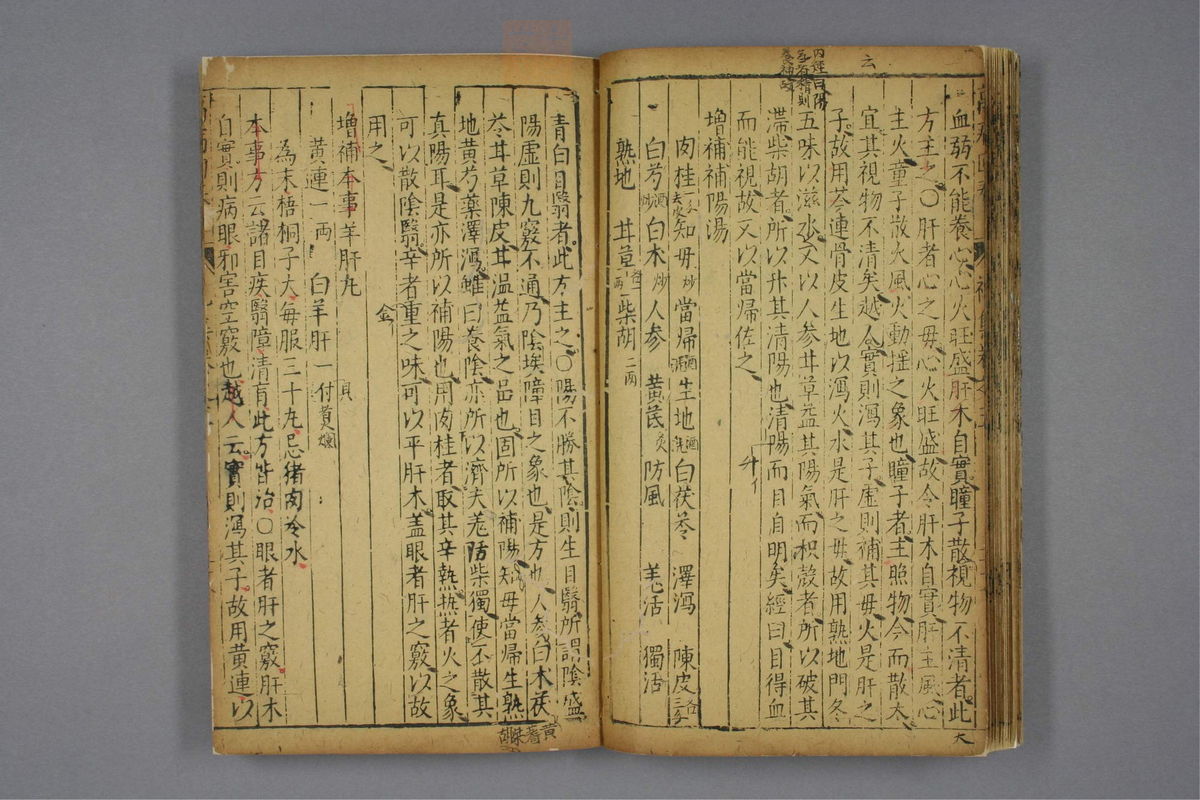 內經曰陽
云
血弱不能養心心火旺盛肝木自實瞳子散視物不清者此
方主之〇肝者心之毋心火旺盛故令肝木自實肝主風心
主火童子散火風火動搖之象也瞳子者主照物今而散大
宜其視物不清矣越人實則瀉其子虛則補其毋火是肝之
子故用芩連骨皮生地以瀉火水是肝之毋故用熟地門冬
五味以滋水又以人參甘草益其陽氣而枳殼者所以破其
滯柴胡者所以升其清陽也清陽而目自明矣經曰目得血
而能視故又以當歸佐之
升
增補補陽湯
肉桂一錢去皮知毋炒當歸酒洗生地酒洗白茯苓 澤瀉 陳皮各三錢
白芍酒炒白朮炒人參 黃芪炙防風 羌活 獨活
熟地 甘草 柴胡二兩
大
青白目翳者此方主之〇陽不勝其陰則生目翳所謂陰盛
陽虛則九竅不通乃陰埃障目之象也是方也人參白朮茯
苓甘草陳皮甘溫益氣之品也固所以補陽知毋當歸生熟
地黃芍藥澤瀉雖曰養陰亦所以濟夫羌防柴獨使不散其
真陽耳是亦所以補陽也用肉桂者取其辛熱熱者火之象
可以散陰翳辛者重之味可以平肝木蓋眼者肝之竅以故
用之
金
增補本事羊肝丸
黃連一兩 白羊肝一付煑爛
為末梧桐子大每服三十丸忌猪肉冷水
本事方云諸目疾翳障清盲此方皆治〇眼者肝之竅肝木
自實則病眼邪害空竅也越人云實則瀉其子故用黃連以